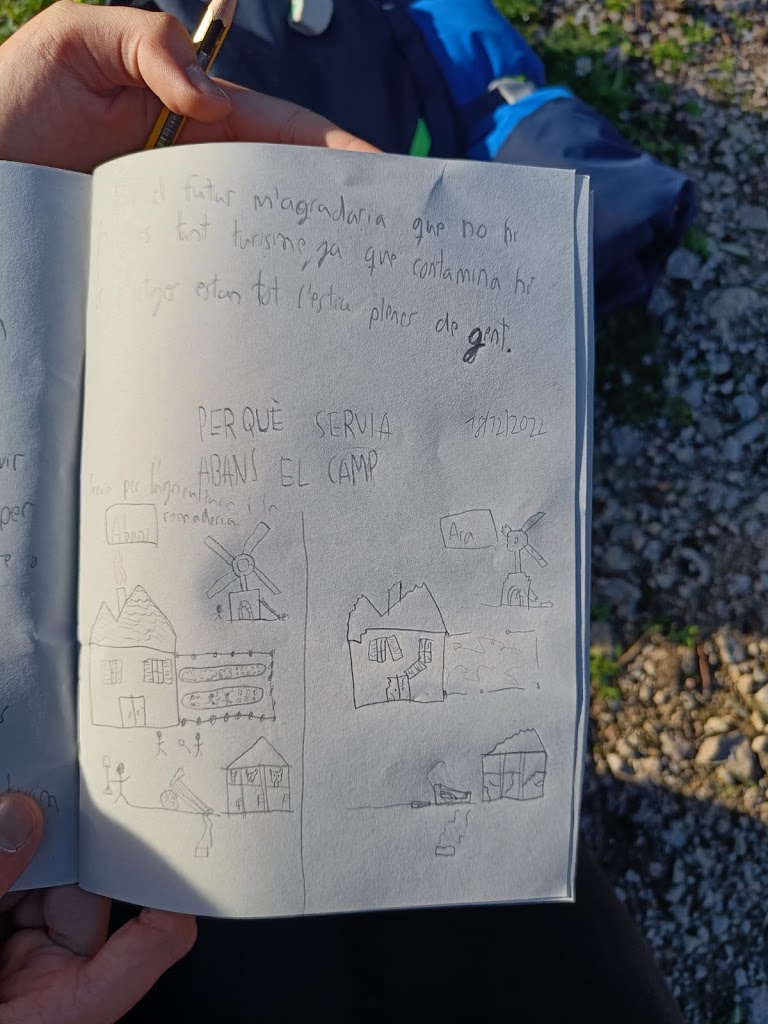 el futur m'agradaria que no hi
tant turisme, ja que contamina hi
estan tot l'estiu plenes de gent.
PERQUÈ SERVIA 18/12/2022
ABANS EL CAMP
Servia per l'agricultura i la
ramaderia
Abans
Ara
vir
per